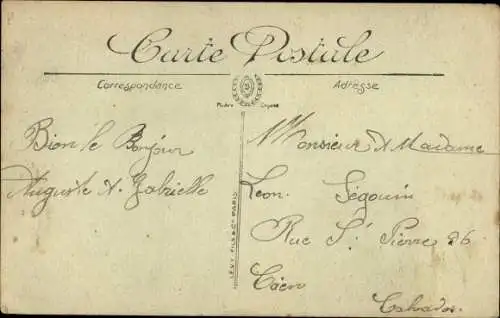 Carte Postale
Correspondance
Adresse
Bien le Bonjour
Auguste et Gabrielle
LEVY FILS & Cie PARIS
Monsieur et Madame
Leon. Ségouin
Rue St Pierre 26
Caen
Calvados.